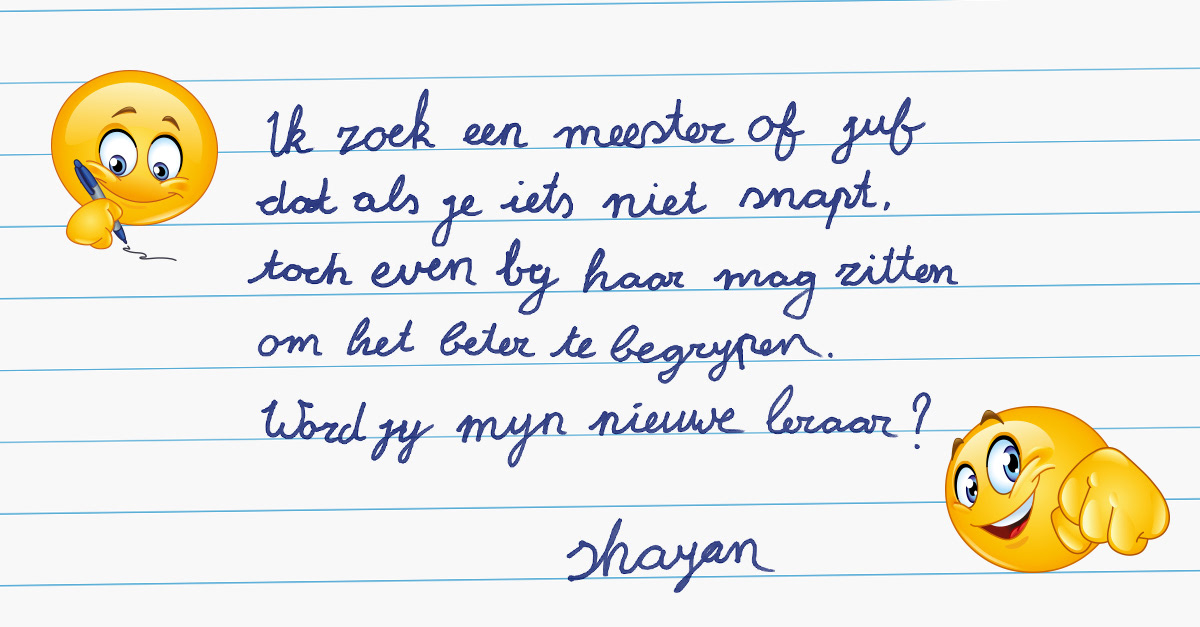 Ik zoek een meester of juf
dat als je iets niet snapt,
toch even bij haar mag zitten
om het beter te begrijpen.
Word jij mijn nieuwe leraar?
Shayan